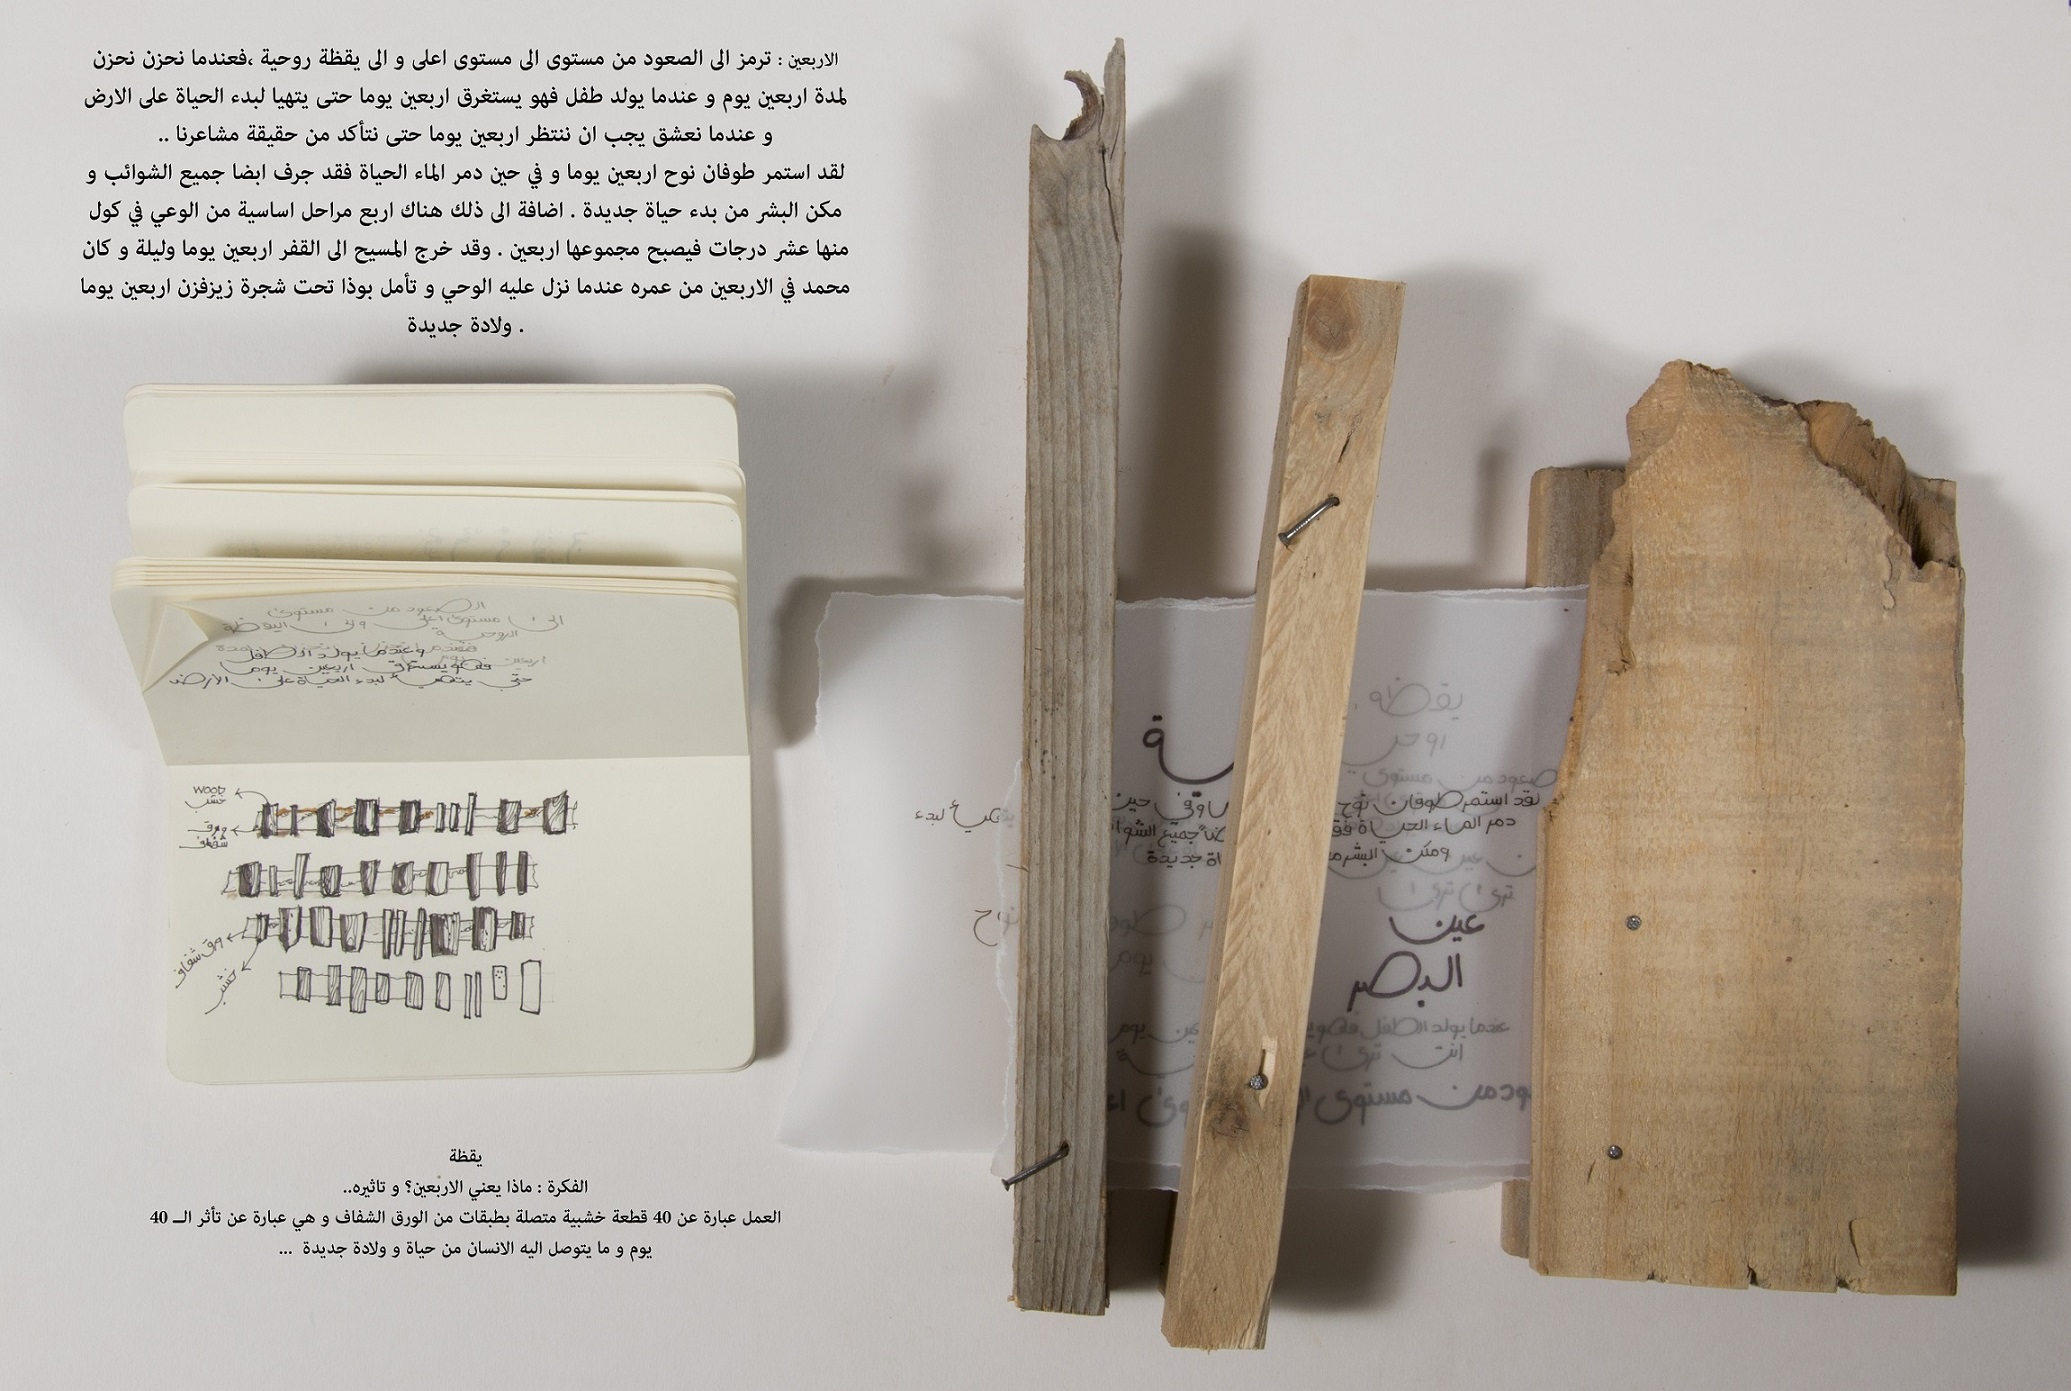 الاربعين : ترمز الى الصعود من مستوى الى مستوى اعلى و الى يقظة روحية ،فعندما نحزن نحزن
لمدة اربعين يوم و عندما يولد طفل فهو يستغرق اربعين يوما حتى يتهيا لبدء الحياة على الارض
و عندما نعشق يجب ان ننتظر اربعين يوما حتى نتأكد من حقيقة مشاعرنا ..
لقد استمر طوفان نوح اربعين يوما و في حين دمر الماء الحياة فقد جرف ابضا جميع الشوائب و
مكن البشر من بدء حياة جديدة . اضافة الى ذلك هناك اربع مراحل اساسية من الوعي في كول
منها عشر درجات فيصبح مجموعها اربعين . وقد خرج المسيح الى القفر اربعين يوما وليلة و كان
محمد في الاربعين من عمره عندما نزل عليه الوحي و تأمل بوذا تحت شجرة زيزفزن اربعين يوما
. ولادة جديدة
الصعود من مستوى
الى مستوى اعلى والى اليقظة
الروحية
وعندما يولد الطفل
فهو يستغرق اربعين يوما
حتى يتهيأ لبدء الحياة على الأرض
wood
خشب
ورق
شفاف
ورق شفاف
خشب
يقظه
روحي
صعود من مستوى
لقد استمر طوفان نوح وفي حين
دمر الماء الحياة جميع
ومكن البشر جديدة
يتهيأ لبدء
ترى ترى
عين
البصر
نوح
عندما يولد الطفل فهو يوم
انت ترى
من مستوى
يقظة
الفكرة : ماذا يعني الاربعين؟ و تاثيره..
العمل عبارة عن 40 قطعة خشبية متصلة بطبقات من الورق الشفاف و هي عبارة عن تأثر الــ 40
يوم و ما يتوصل اليه الانسان من حياة و ولادة جديدة ...